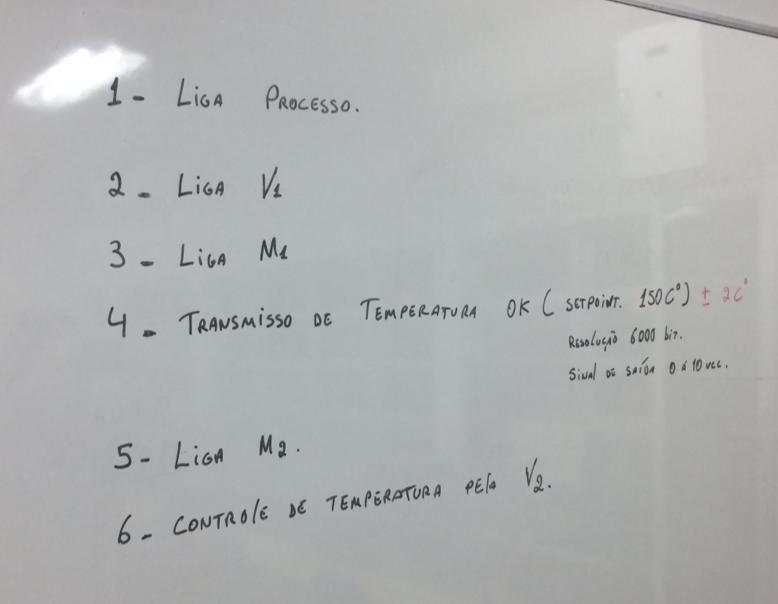 1- LIGA PROCESSO.
2- LIGA V1
3- LIGA M1
4- TRANSMISSO DE TEMPERATURA OK ( SETPOINT. 150C°) ± 2C°
RESOLUÇÃO 6000 bit.
SINAL DE SAÍDA 0 á 10 vcc.
5- LIGA M2.
6- CONTROLE DE TEMPERATURA PELA V2.